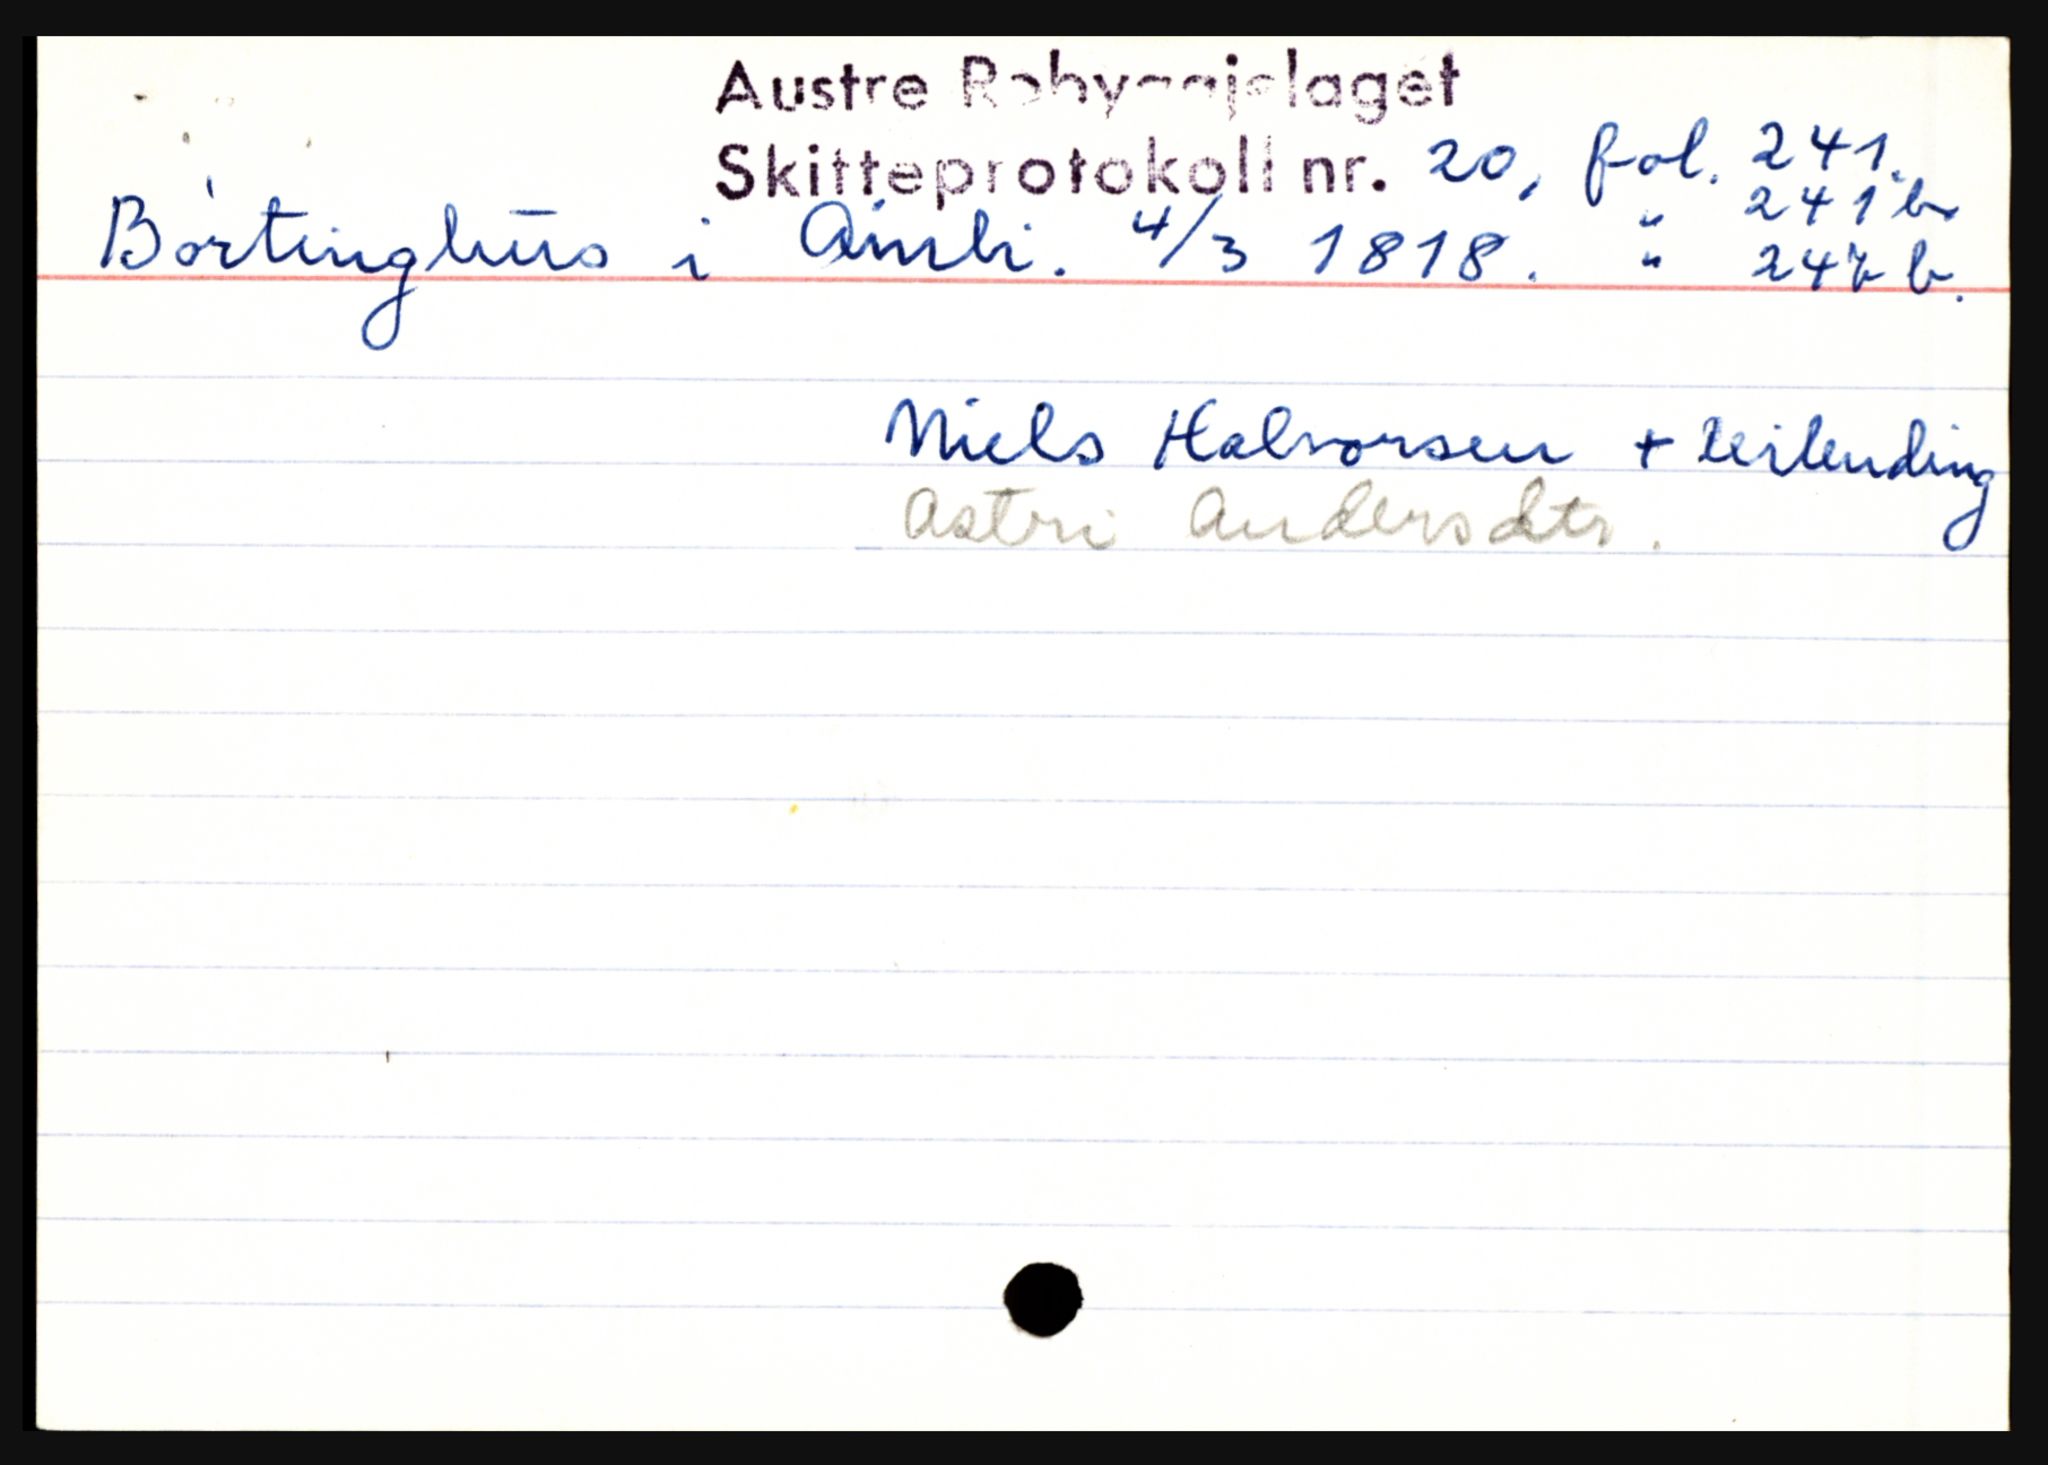 Austre Robyggjelaget
Skifteprotokoll nr. 20, fol. 241.
" 241 b
Börtinghus i Åmli. 4/3 1818. " 247 b.
Niels Halvorsen + leilending
Astri Andersdtr.